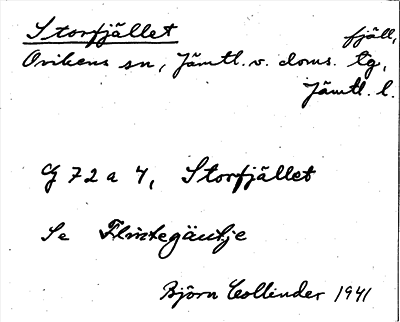 Storfjället fjäll,
Ovikens sn, Jämtl. v. doms. tg,
Jämtl. l.
G 72 a 4, Storfjället
Se
Björn Collinder 1941